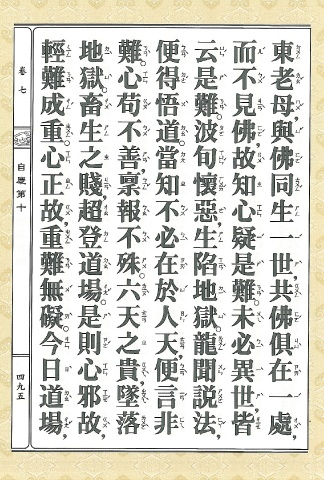 東老母，與佛同生一世，共佛俱在一處，
而不見佛。故知心疑是難，未必異世皆
云是難。波旬懷惡，生陷地獄。龍聞說法，
便得悟道。當知不必在於人天，便言非
難。心苟不善，稟報不殊。六天之貴，墜落
地獄。畜生之賤，超登道場。是則心邪故，
輕難成重。心正故，重難無礙。今日道場，
卷七
自慶第十
四九五